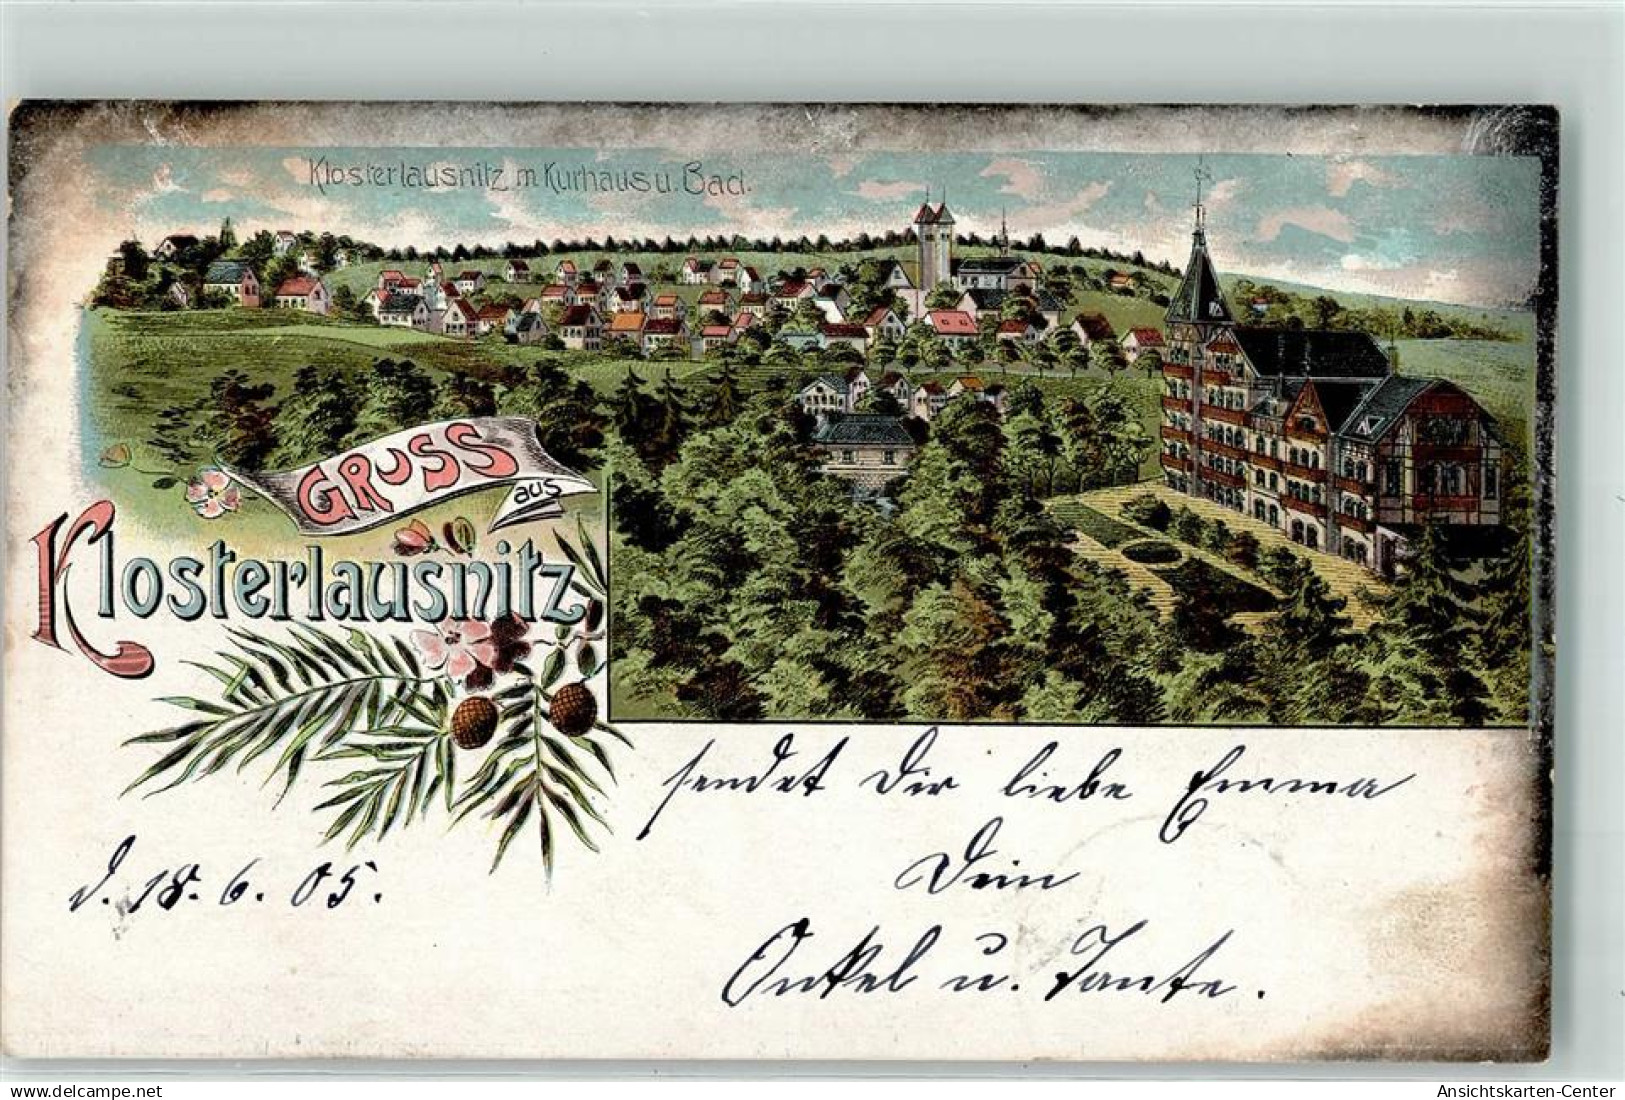 Klosterlausnitz m Kurhaus u. Bad.
GRUSS
aus
Klosterlausnitz
sendet Dir liebe Emma
Dein
d. 18. 6. 05.
Onkel u. Tante.
akpool.de
Ansichtskarten-Center